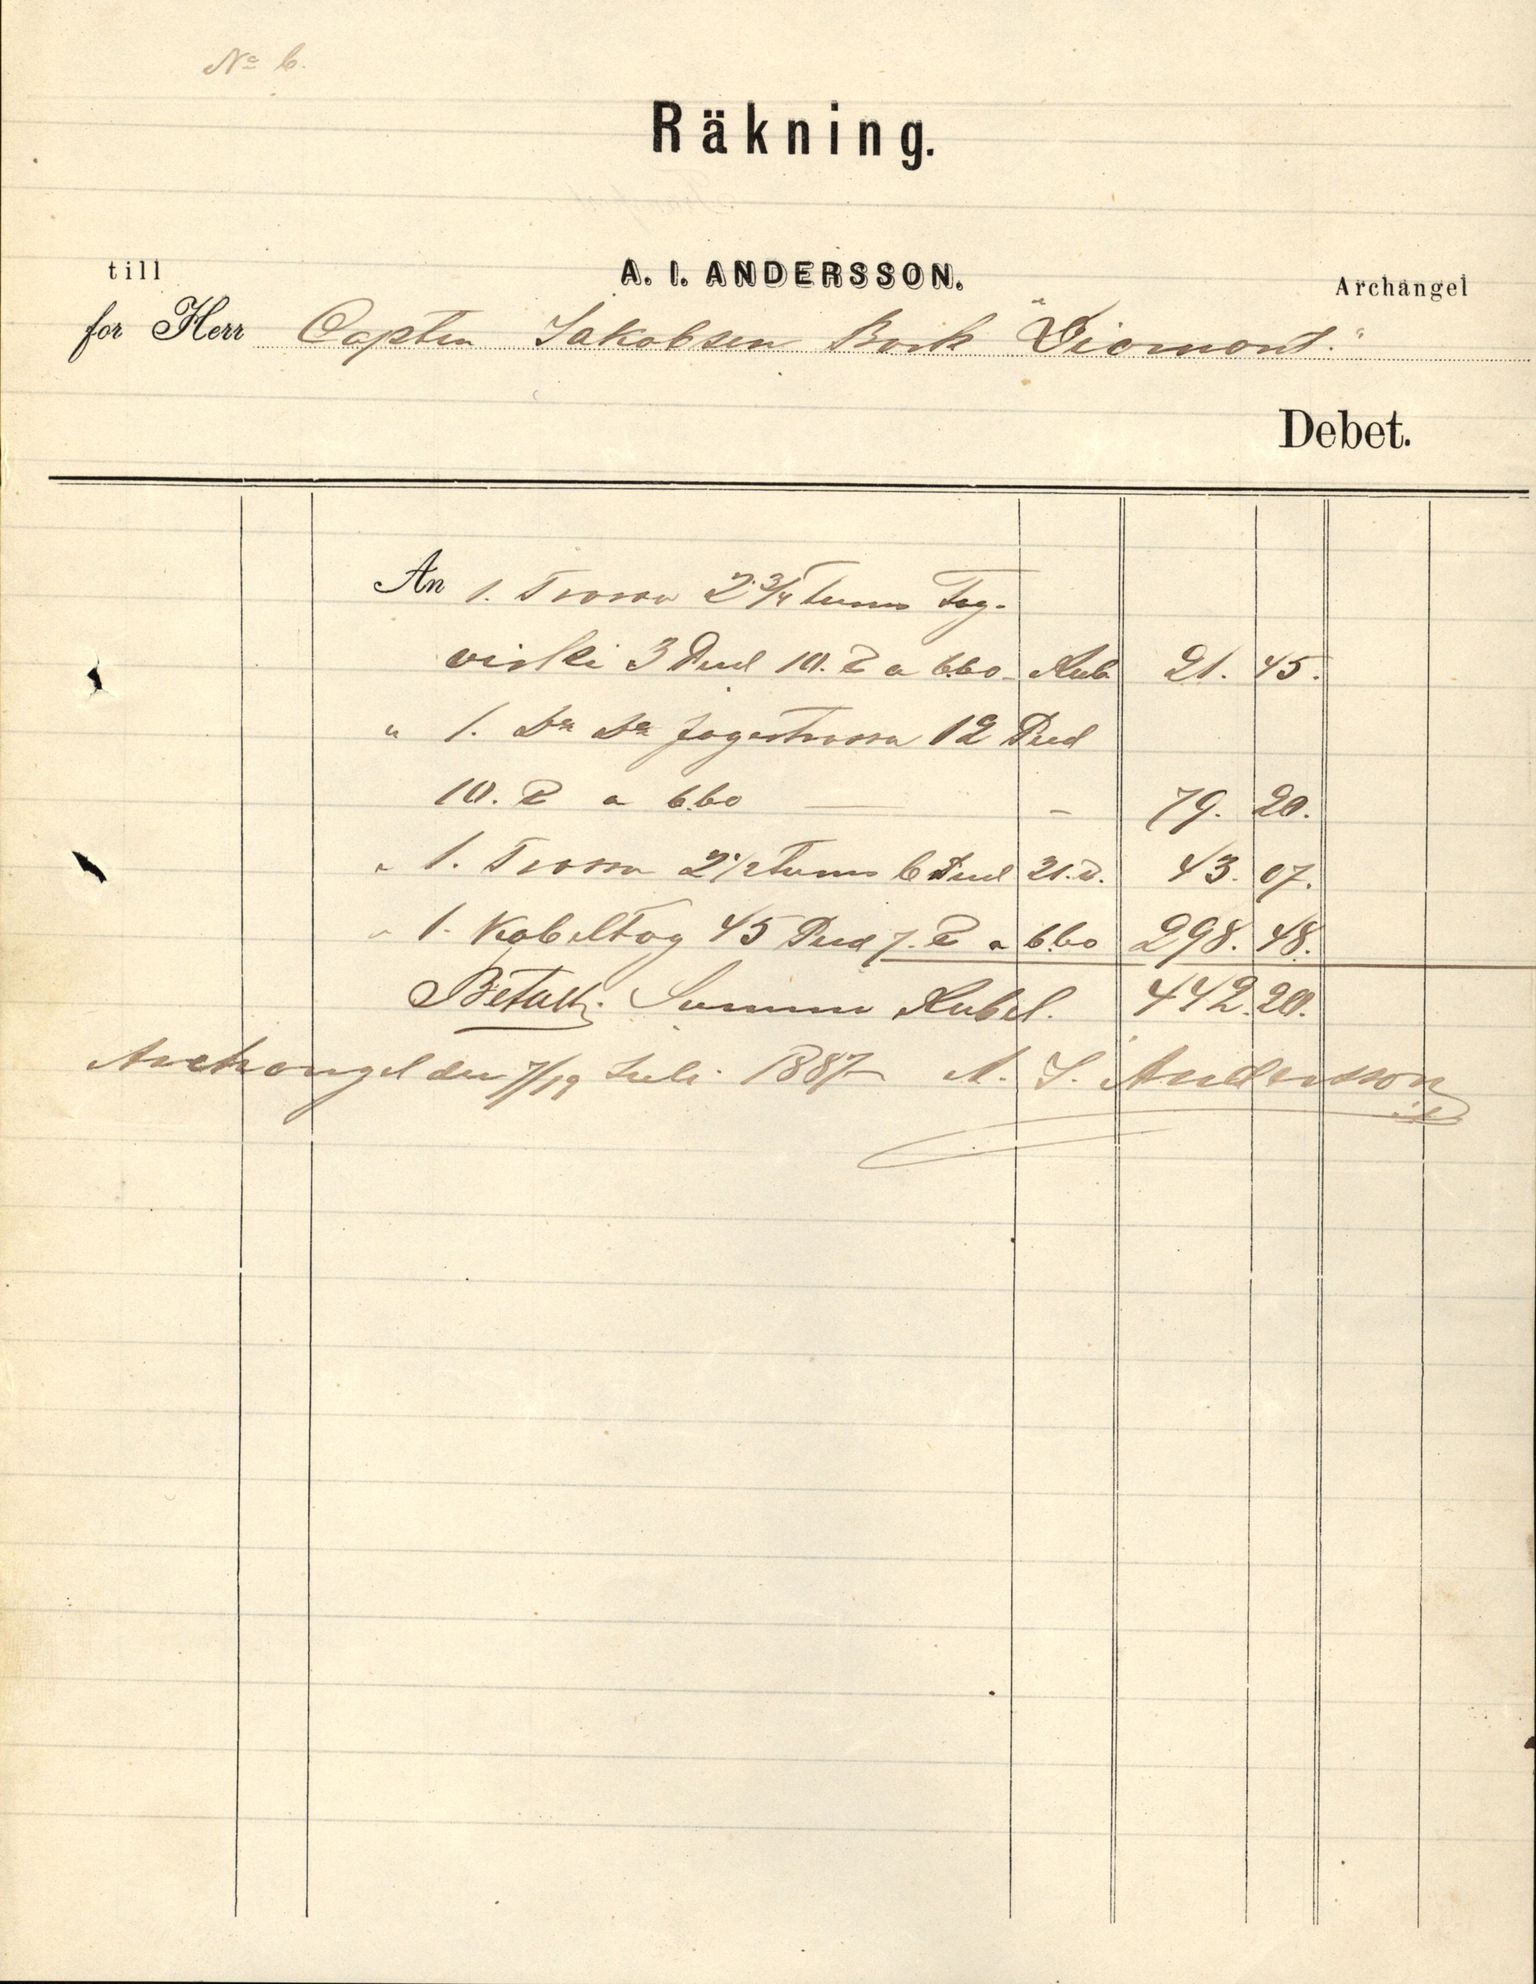 No 6.
Räkning.
till A. I. ANDERSSON. Archangel
for Herr Capten Jakobsen Bark "Diamant."
Debet.
An 1. Trossa 2 3/4 tums Tog-
virke 3 Pud 10. ℔ a 6.60 Rub 21. 45.
" 1. Do Do Jagertrossa 12 Pud
10. ℔ a 6.60 — - 79. 20.
" 1. Trossa 2 1/2 Tums 6 Pud 21. ℔. 43. 07.
" 1. Kabeltog 45 Pud 7. ℔ a 6.60 298. 48.
Betalt. Summa Rubel. 442. 20.
Archangel den 7/19 Juli 1887 A. I. Andersson